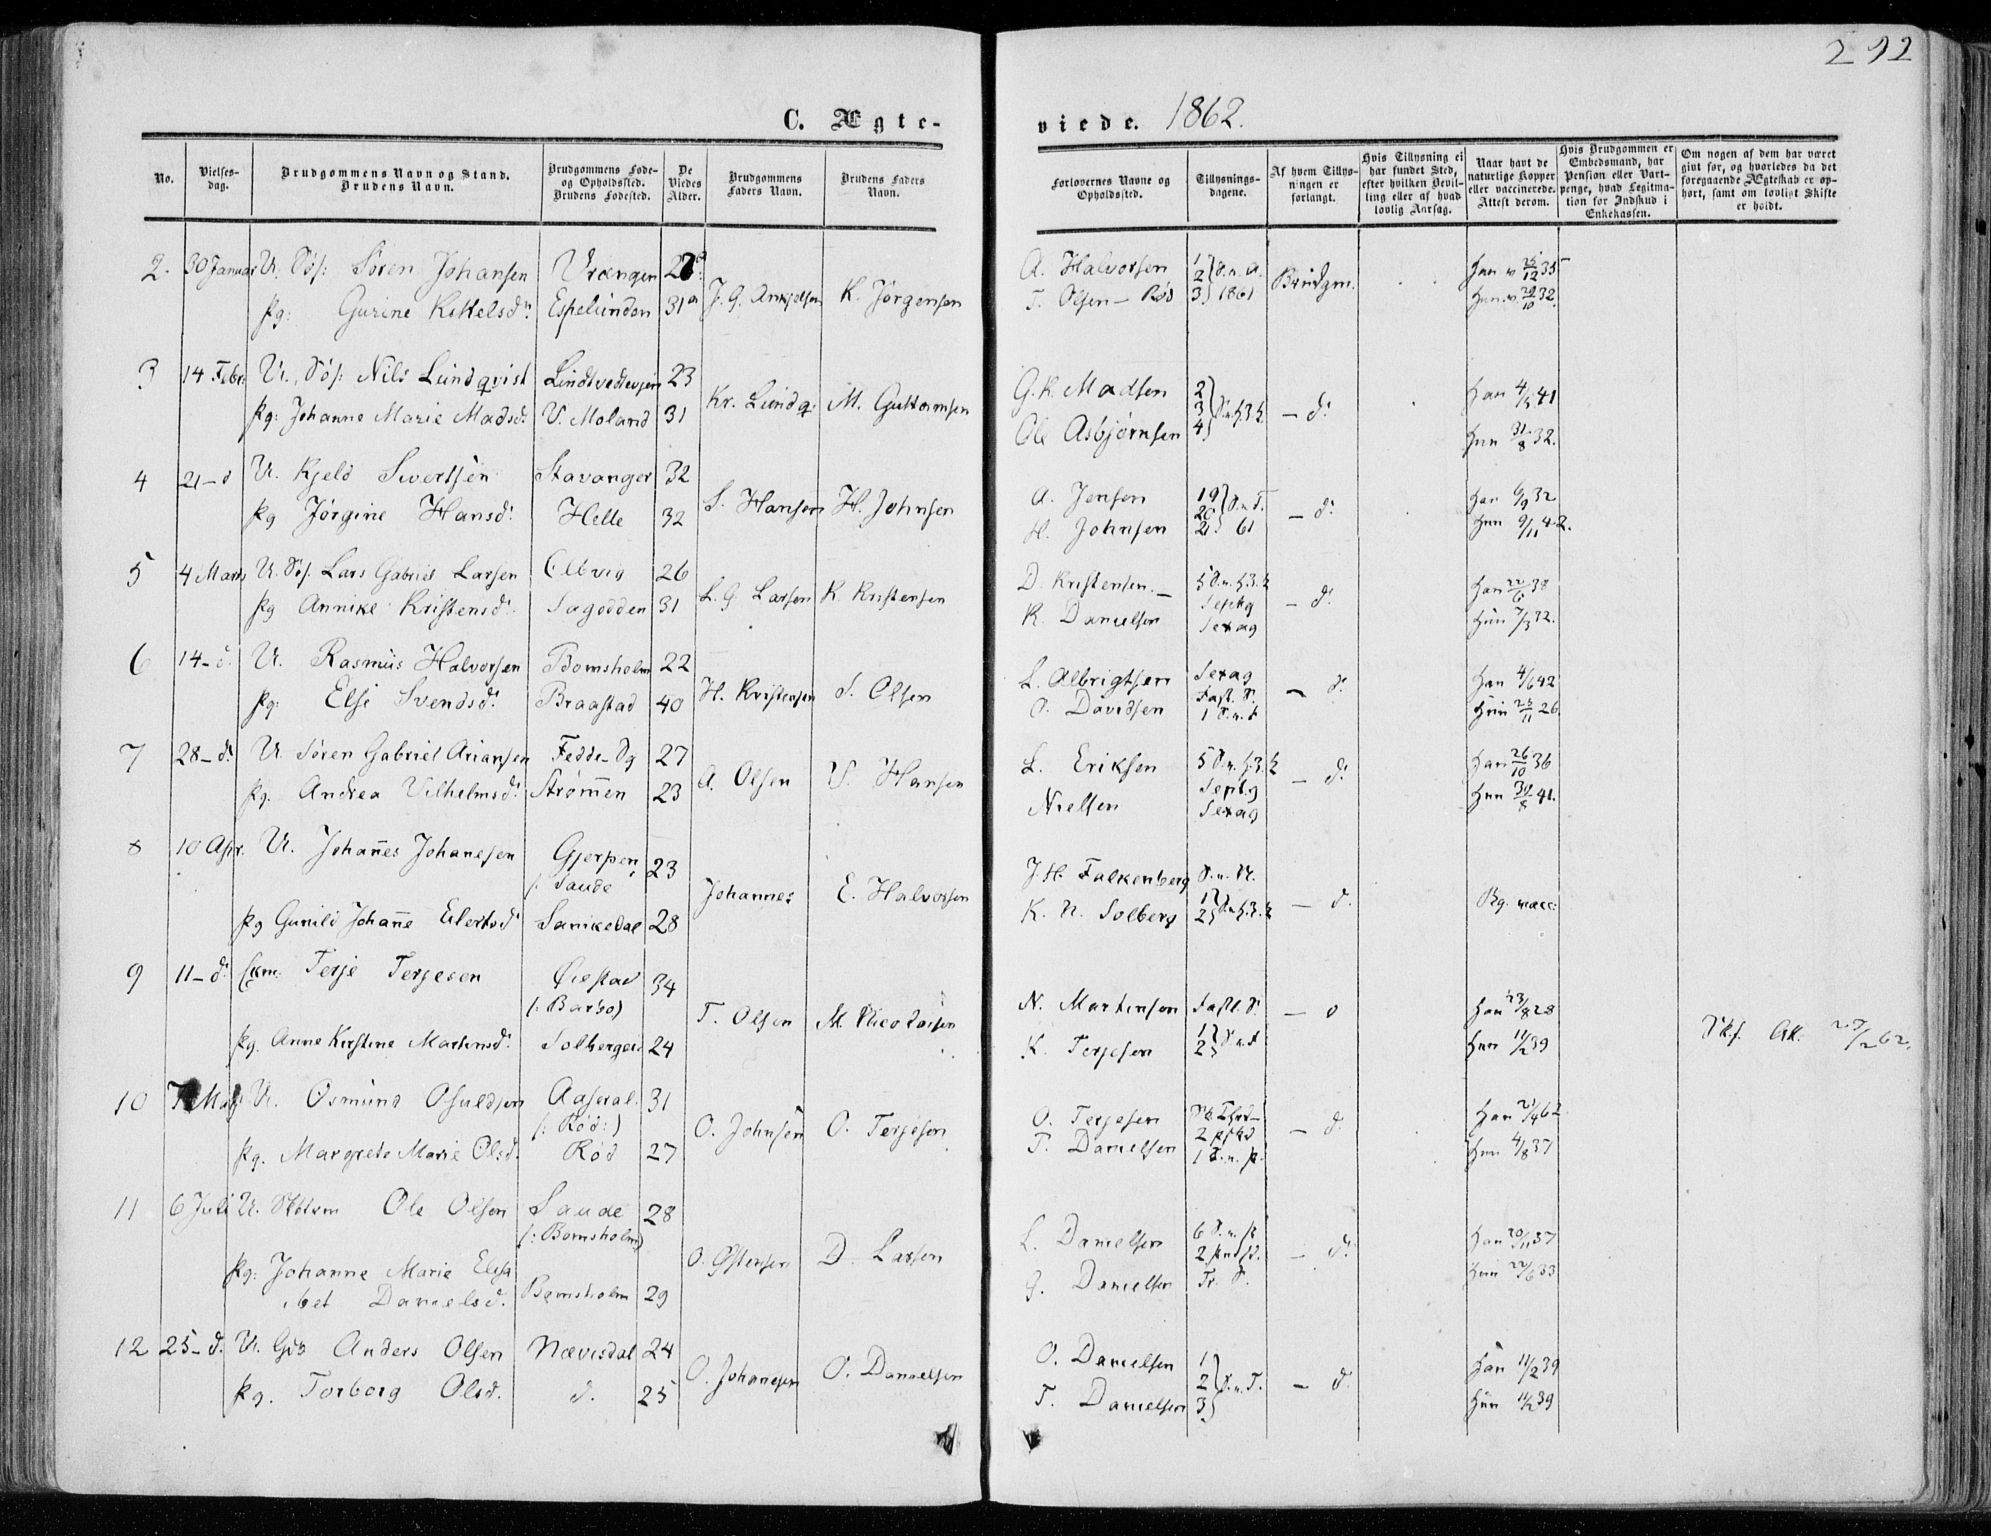 292
C. Ægte-
viede. 1862.
No.
Vielses-
dag.
Brudgommens Navn og Stand.
Brudens Navn.
Brudgommens Føde-
og Opholdssted.
Brudens Fødested.
De
Viedes
Alder.
Brudgommens
Faders Navn.
Brudens Faders
Navn.
Forlovernes Navne og
Opholdssted.
Tillysnings-
dagene.
Af hvem Tillys-
ningen er
forlangt.
Hvis Tillysning ei
har fundet Sted,
efter hvilken Bevil-
ling eller af hvad
lovlig Aarsag.
Naar havt de
naturlige Kopper
eller vaccinerede.
Attest derom.
Hvis Brudgommen er
Embedsmand, har
Pension eller Vart-
penge, hvad Legitima-
tion for Indskud i
Enkekassen.
Om nogen af dem har været
givt før, og hvorledes da det
foregaaende Ægteskab er op-
hørt, samt om lovligt Skifte
er holdt.
2. 30 Januar U. Søf: Søren Johansen Vrængen J. G. Ankjelsen K. Jørgensen A. Halvorsen 1 2 3 S.n.a. 1861 Brudgm. Han v 25/12 35
pg: Gurine Kittelsd. Espelunden 31 T. Olsen – Røs Hun v. 29/10 32.
3 14 Febr. U. Søf: Nils Lundqvist 23 Kr. Lundq: M. Guttormsen G. K. Madsen 2 3 4 – d: Han 4/8 41
pg: Johanne Marie Madsd. V. Moland 31 Ole Asbjørnsen Hun 31/8 32.
4 21 – d U. Kjeld Sivertsen Stavanger 32 S. Hansen H. Johnsen A. Jensen 19 20 21 61 – d: Han 6/9 32
pg Jørgine Hansd. Helle 32 H. Johnsen Hun 9/11 42.
5 4 Marts U. Søf. Lars Gabriel Larsen 26 L. G Larsen K. Kristensen D. Kristensen. – 5 S.n.h.3.k – d: Han 22/6 38
pg Annike Kristensd. Sagodden 31 K. Danielsen Septg Sexag Hun 7/3 32.
6 14 – d. U. Rasmus Halvorsen Bomsholm 22 H. Kristensen S. Olsen L. Albrigtsen Sexag – d: Han 4/6 42
pg: Elsi Svendsd. Braastad 40 O. Davidsen Fast. S. 1 S.n.f Hun 25/11 26
7 28 – d: U. Søren Gabriel Ariansen Fedde – Sg 27 A. Olsen V. Hansen L. Eriksen 5 S.n.h.3.k – d: Han 26/10 36
pg. Andrea Vilhelmsd. Strømmen 23 Nielsen Septg Sexag Hun 30/8 41.
8 10 Apr. U. Johannes Johanesen Gjerpen (: Saude 23 Johannes E. Halvorsen J. H. Falkenberg S.n.N. – d. Bg. vacc:
pg Gunild Johanne Eilertsd Sanikedal 28 K. N. Solberg 1 2 S.n.h.3.k
9 11 – d: Ekm. Terje Terjesen Øiestad (: Barbo) 34 T. Olsen M. Nicolaisen N. Martinsen Fastl. S. – d Han 23/8 28 Skf. Att. 25/2 62.
pg. Anne Kirstine Martinsd. Solberget 24 K. Terjesen 1 2 S.n.f Hun 11/2 39
10 7 Mai U. Osmund Osuldsen Aaseral. (: Rød:) 31 O. Johnsen O. Terjesen O. Terjesen 2 – d. Han 21/4 62
pg. Margrete Marie Olsd. Rød 27 T. Danielsen 1 S.n.p. Hun 4/8 37
11 6 Juli U. Ole Olsen Saude (: Bomsholm) 28 O. Østensen D. Larsen L. Danielsen 6 S.n.p 2 – d: Han 20/11 37
pg: Johanne Marie Elisa
bet Danielsd. Bomsholm 29 G. Danielsen Tr. S. Hun 22/6 33
12 25 – d. U. Gb Anders Olsen Nævisdal 24 O. Johanesen O. Danielsen O. Danielsen 1 2 3 S.n.T. – d. Han 11/2 39
pg. Torborg Olsd. d. 25 T. Danielsen Hun 11/2 39